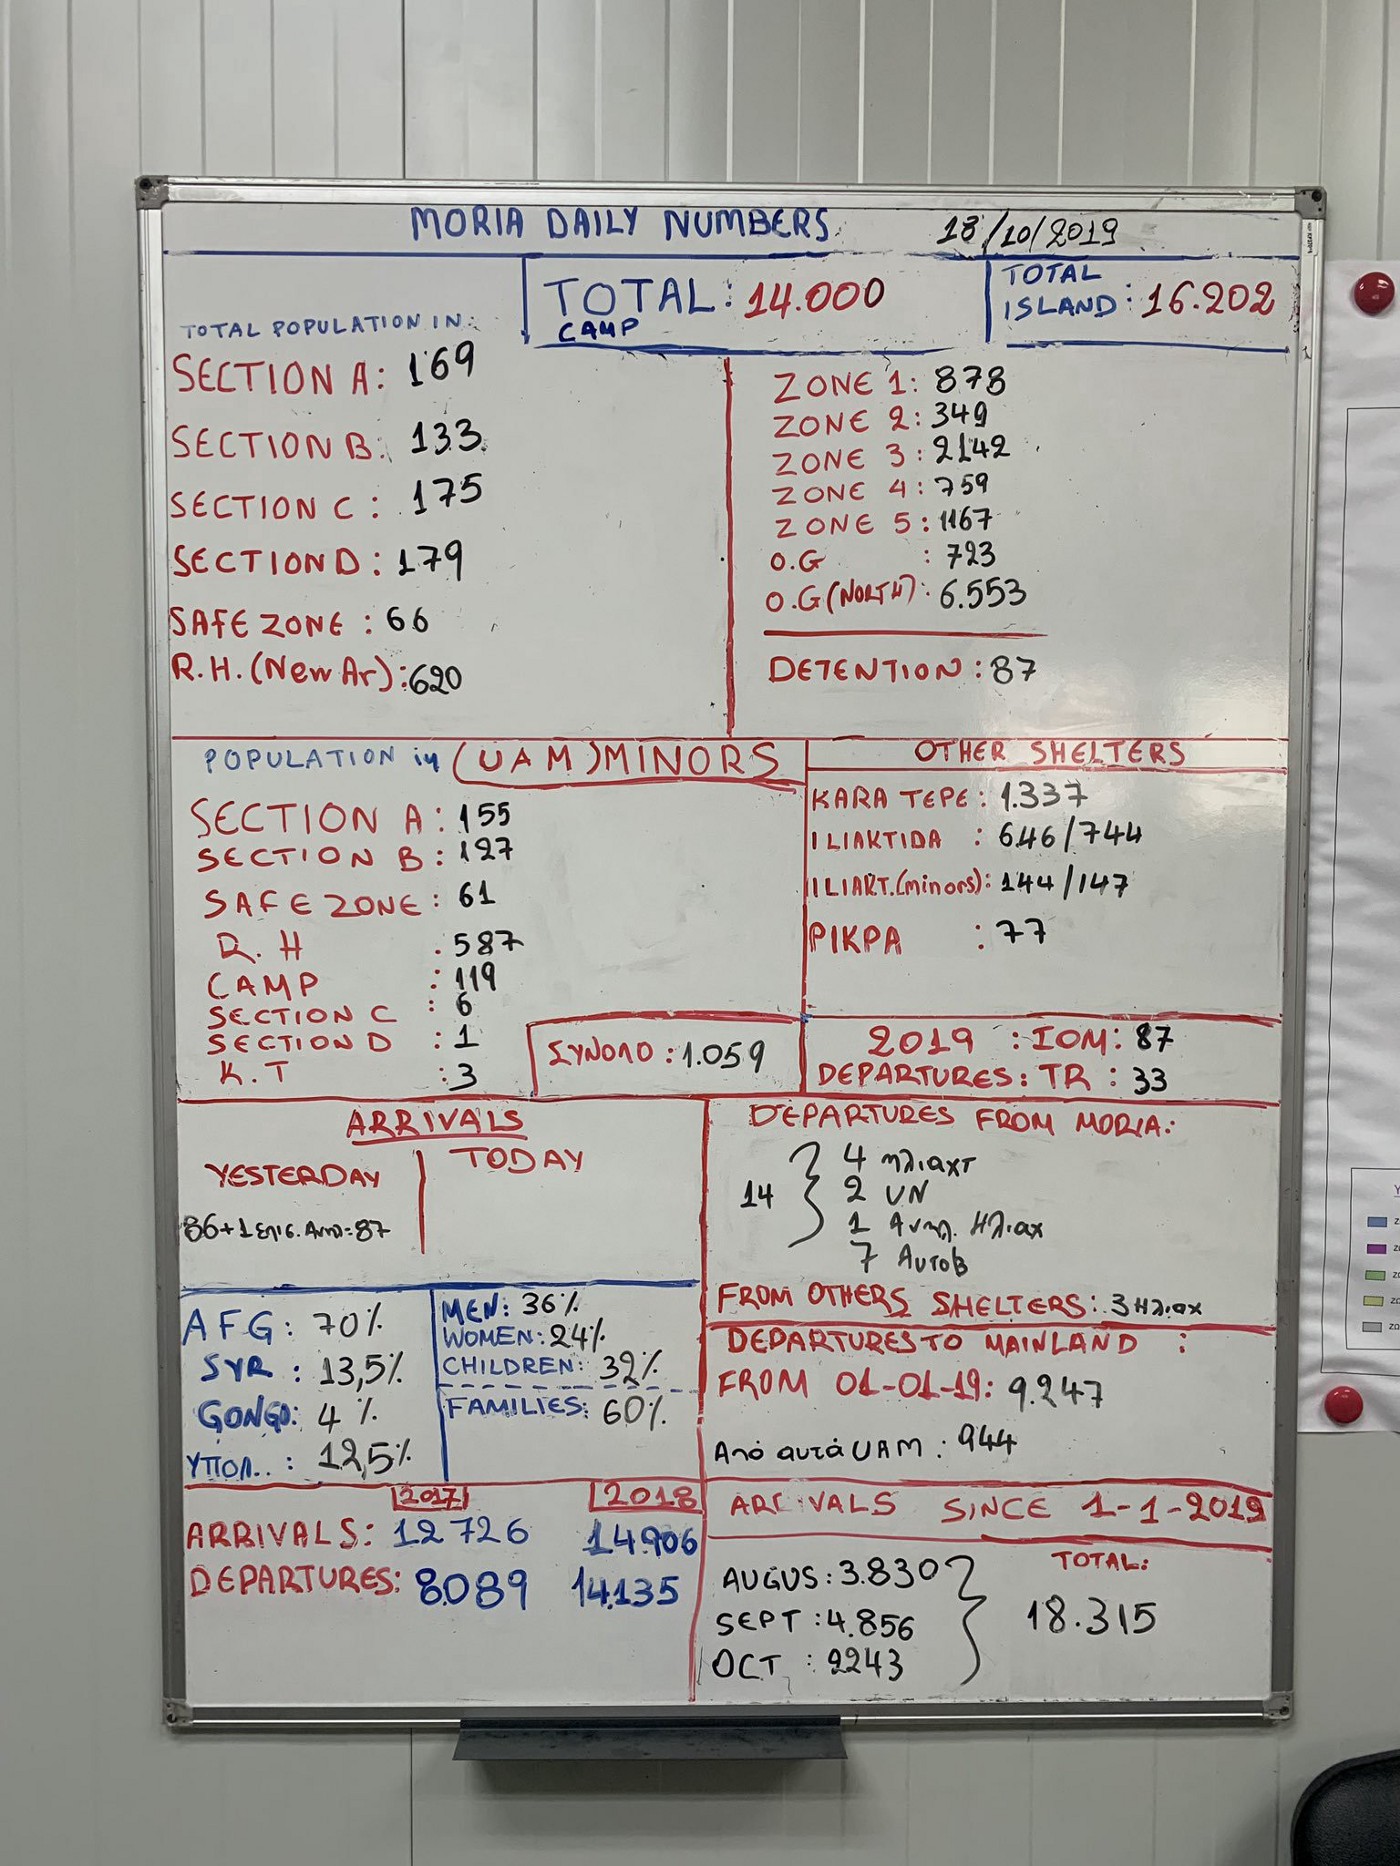 MORIA DAILY NUMBERS 18/10/2019
TOTAL CAMP: 14.000
TOTAL ISLAND: 16.202
TOTAL POPULATION IN:
SECTION A: 169
SECTION B: 133
SECTION C: 175
SECTION D: 179
SAFE ZONE: 66
R.H. (New Ar): 620
ZONE 1: 878
ZONE 2: 349
ZONE 3: 2142
ZONE 4: 759
ZONE 5: 1167
O.G : 723
O.G (NORTH): 6.553
DETENTION: 87
POPULATION in (UAM) MINORS
SECTION A: 155
SECTION B: 127
SAFE ZONE: 61
R.H : 587
CAMP : 119
SECTION C : 6
SECTION D : 1
K.T : 3
ΣΥΝΟΛΟ: 1.059
OTHER SHELTERS
KARA TEPE: 1.337
ILIAKTIDA : 646/744
ILIAKT.(minors): 144/147
PIKPA : 77
2019 : IOM: 87
DEPARTURES: TR : 33
ARRIVALS
YESTERDAY
86+1 επις. Απλ=87
TODAY
DEPARTURES FROM MORIA:
14 } 4 ηλιαχτ
2 UN
1 Ανηλ. Ηλιαχ
7 Αυτοβ
FROM OTHERS SHELTERS: 3 Ηλιαχ
DEPARTURES TO MAINLAND :
FROM 01-01-19: 9.247
Από αυτά UAM: 944
AFG: 70%
SYR: 13,5%
GONGO: 4%
ΥΠΟΛ..: 12,5%
MEN: 36%
WOMEN: 24%
CHILDREN: 32%
FAMILIES: 60%
2017 2018
ARRIVALS: 12726 14.906
DEPARTURES: 8.089 14.135
ARCIVALS SINCE 1-1-2019
AUGUS: 3.830
SEPT: 4.856
OCT : 2243
TOTAL:
18.315